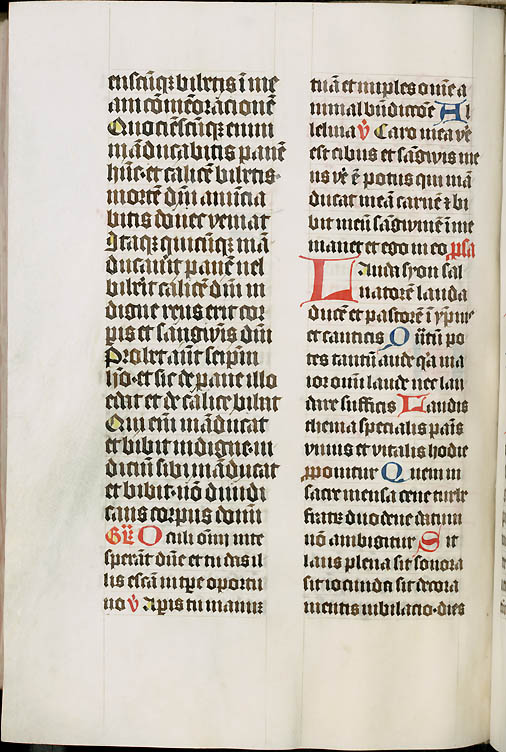 cu̅scu̅q; biberis i̅ me
am co̅me̅oracione̅
Quociescu̅q; enim
ma̅ducabitis pane̅
hu̅c · et calice̅ bibetis ·
morte̅ dn̅i anu̅cia
bitis donec veniat
Itaq; quicu̅q; ma̅
ducau̅it pane̅ uel
biberit calice̅ dn̅i in
digne reus erit cor
p̅is et sangwi̅s dn̅i
Probet aut̅ seipm̅
ho̅ · et sic de pane illo
edat et de calice bibat
Qui eni̅ ma̅ducat
et bibit indigne · iu
diciu̅ sibi ma̅ducat
et bibit · no̅ diiudi
cans corpus domi̅
Gr̅ Oculi om̅i̅ in te
spera̅t dn̅e et tu das il
lis esca̅ in tp̅e oportu
no v̅ Apis tu manu̅
tua̅ et imples om̅e a
nimal bn̅dictio̅e Al
leluia v̅ Caro mea ve̅
est cibus et sa̅gwis me
us ve̅ e̅ potus qui ma̅
ducat mea̅ carne̅ et bi
bit meu̅ sa̅gwine̅ i̅ me
manet et ego in eo psa
Lauda syon sal
uatore̅ lauda
duce̅ et pastore̅ i̅ ypm̅is
et canticis Qu̅tu̅ po
tes tantu̅ aude q̅a ma
ior om̅i laude nec lau
dare sufficis Laudis
thema specialis pa̅is
viuus et vitalis hodie
p̅ponitur Quem in
sacre mensa cene turbe
fratr̅ duodene datum
no̅ ambigitur Sit
laus plena sit sonora
sit iocunda sit decora
mentis iubilacio · dies